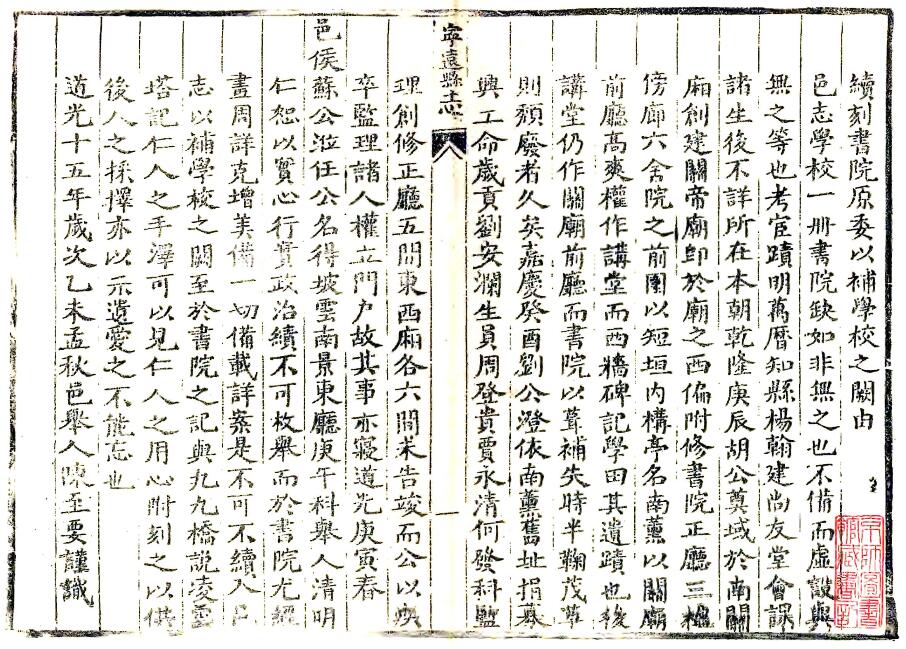 續刻書院原委以補學校之闕由
邑志學校一冊書院缺如非無之也不備而虛設與
無之等也考宦蹟明萬曆知縣楊翰建尚友堂會課
諸生後不詳所在本朝乾隆庚辰胡公奠域於南關
廂創建關帝廟即於廟之西偏附修書院正廳三楹
傍廊六舍院之前圍以短垣內構亭名南薰以關廟
前廳高爽權作講堂而西牆碑記學田其遺蹟也後
講堂仍作關廟前廳而書院以葺補失時半鞠茂草
則頹廢者久矣嘉慶癸酉劉公澄依南薰舊址捐募
興工命歲貢劉安瀾生員周登貴賈永清何發科監
寧遠縣志
理創修正廳五間東西廂各六間未告竣而公以病
卒監理諸人權立門戶故其事亦寢道光庚寅春
邑侯蘇公涖任公名得坡雲南景東廳庚午科舉人清明
仁恕以實心行實政治績不可枚舉而於書院尤經
畫周詳克增美備一切備載詳案是不可不續入邑
志以補學校之闕至於書院之記與九九橋說凌雲
塔記仁人之手澤可以見仁人之用心附刻之以俟
後人之採擇亦以示遺愛之不能忘也
道光十五年歲次乙未孟秋邑舉人陳至要謹識
京師圖書館藏書記